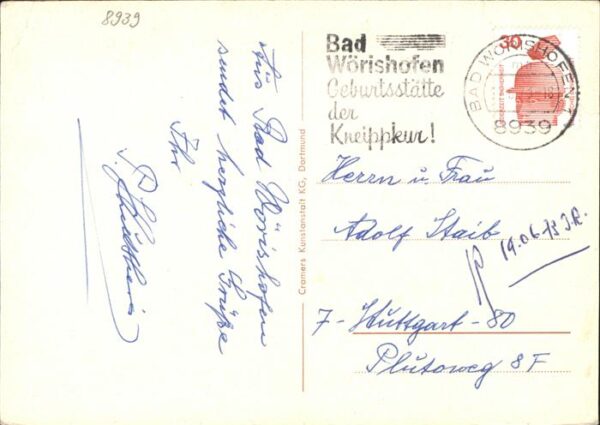 8939
Aus Bad Wörishofen
sendet herzliche Grüße
Ihr
Cramers Kunstanstalt KG, Dortmund
Bad
Wörishofen
Geburtsstätte
der
Kneippkur!
30
BAD WÖRISHOFEN 1
8939
Herrn u. Frau
Adolf Staib
19.06.73 J.R.
7-Stuttgart-80
Plutoweg 8F